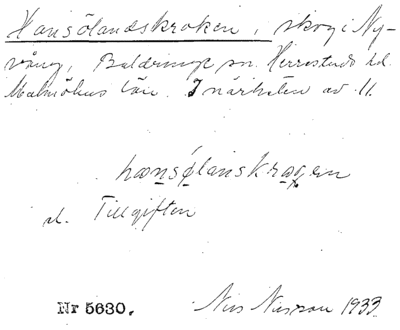 Hansölandskroken, skog i Ny-
vång, Baldringe sn. Herrestads hd.
Malmöhus län. I närheten av 11.
hansǿlanskrogen
el. Tillgiften
Nr 5630. Nils Nilsson 1933.